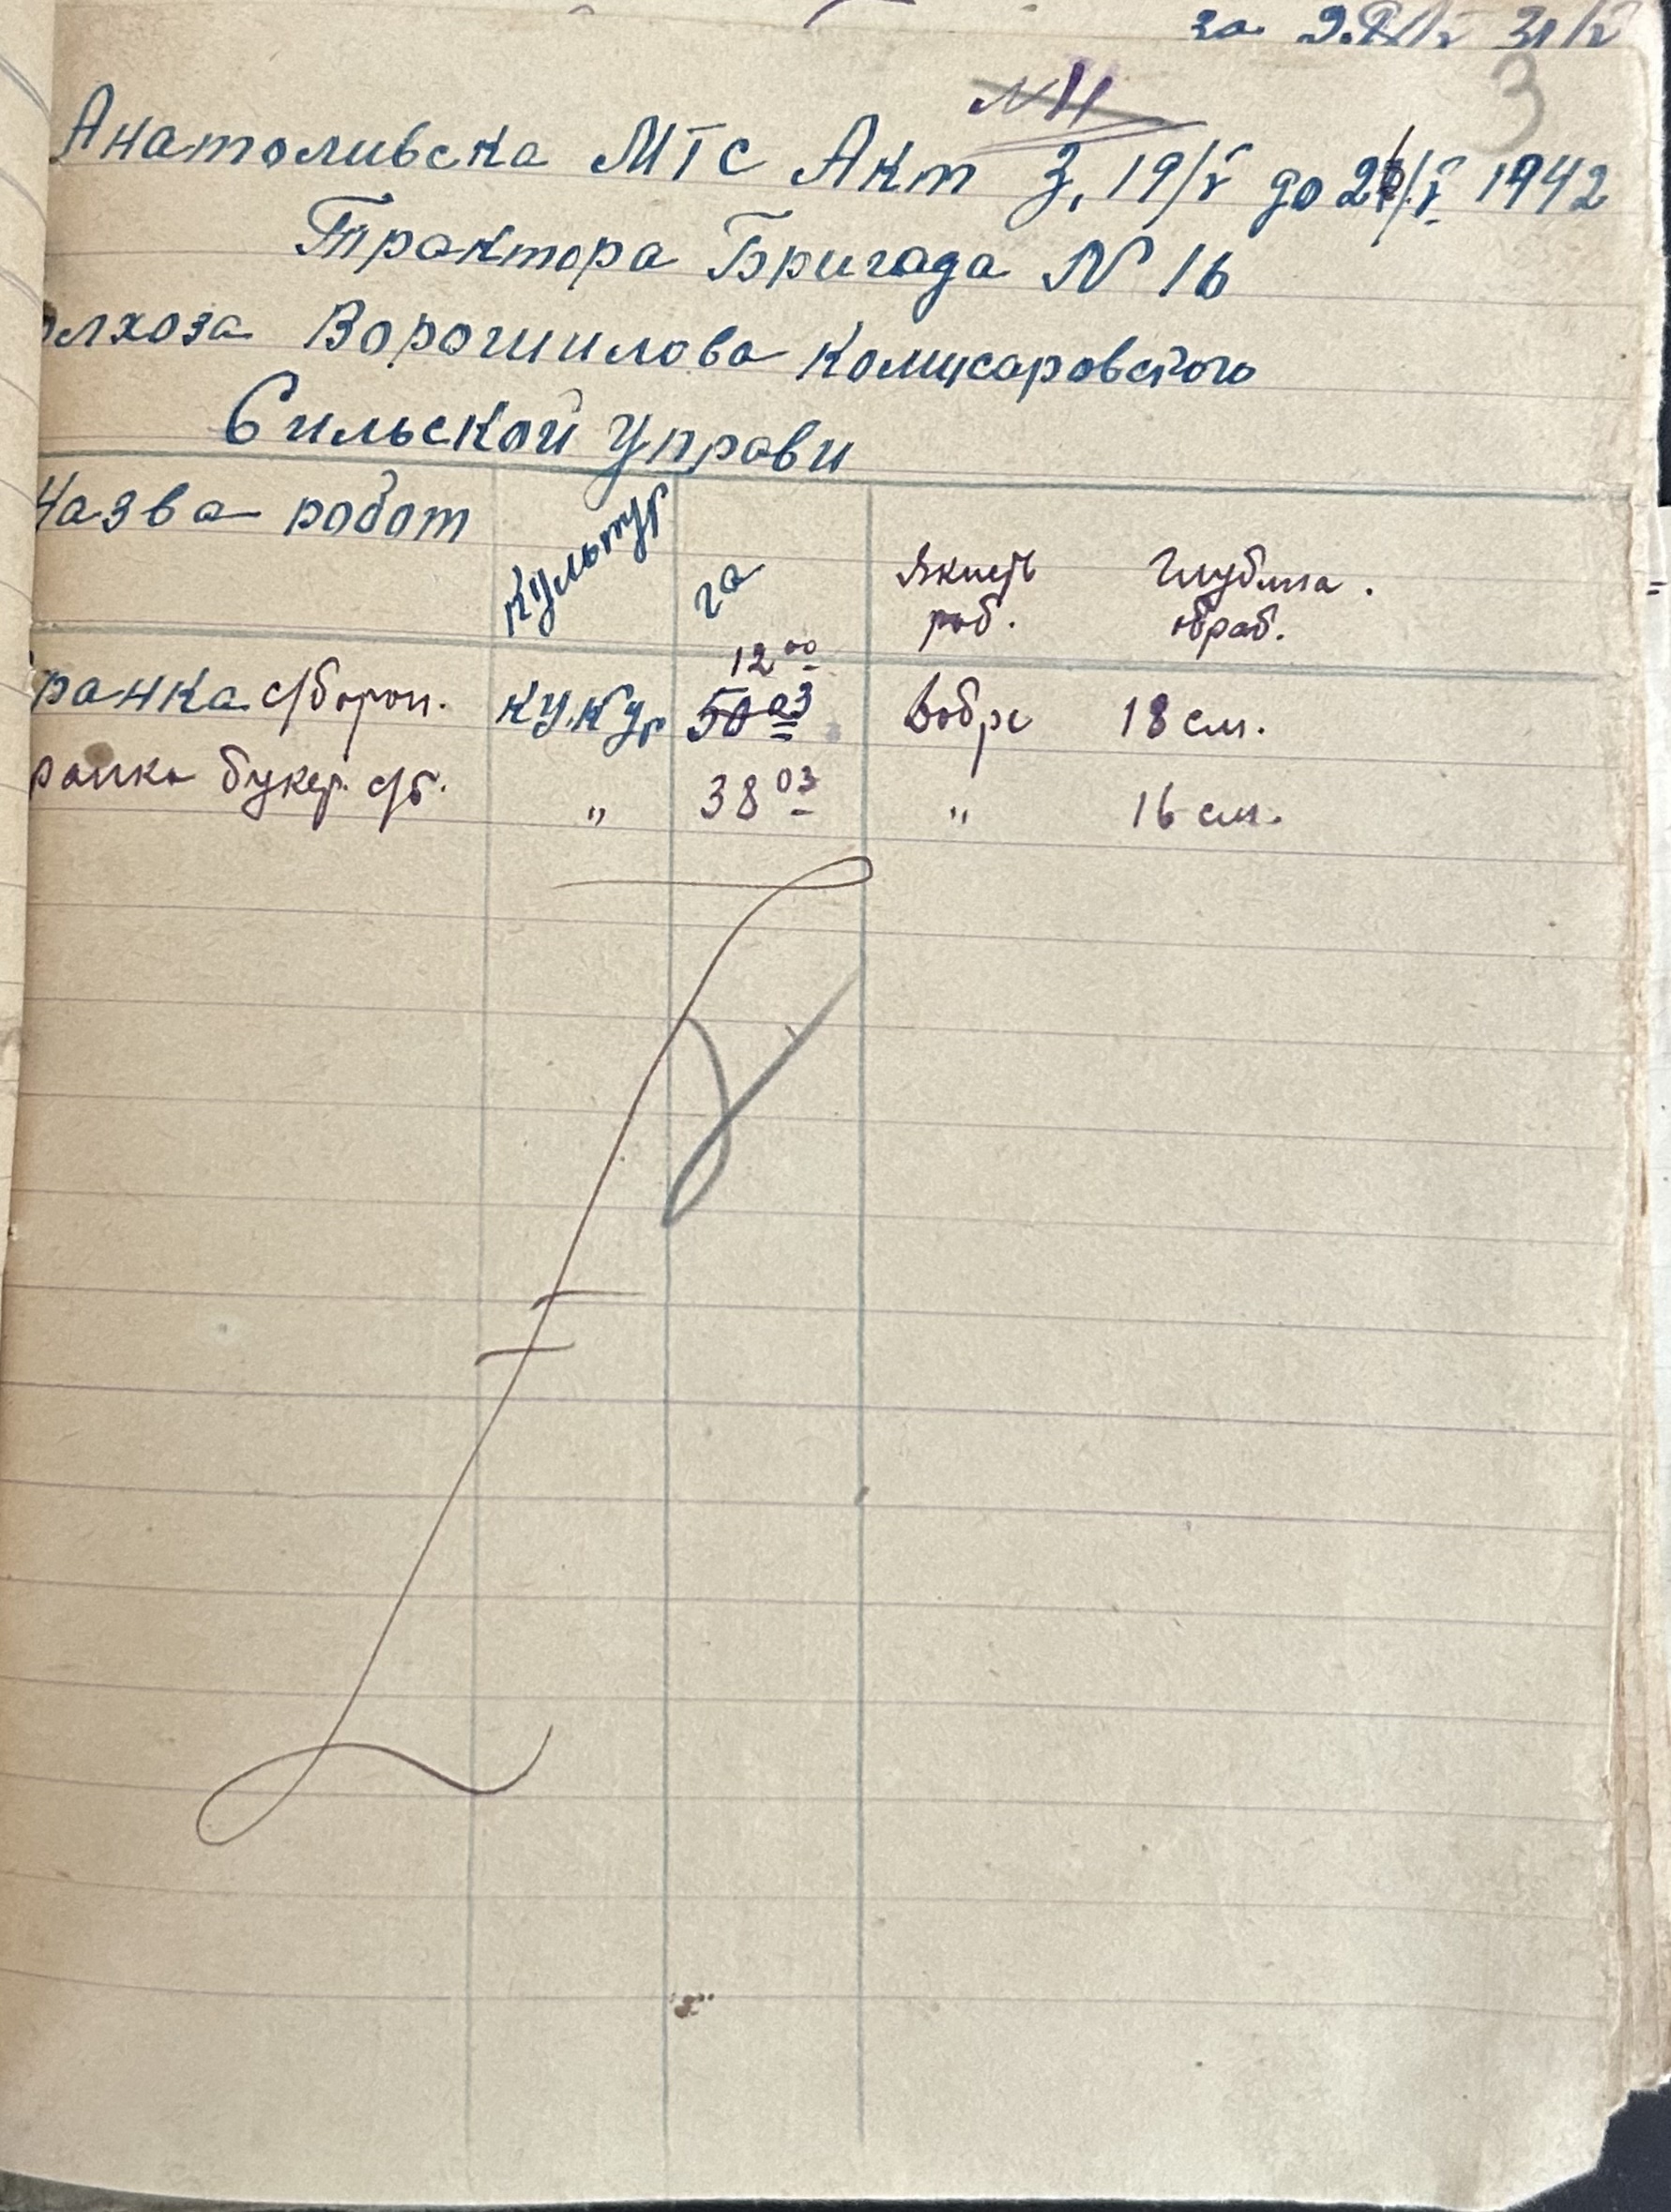 за
3
N 11
Анатоливска МТС Акт З, 19/V до 26/V 1942
Трактора Бригада N 16
олхоза Ворошилова Комисаровского
Сильской Управи
Назва робот Культур га Якисть роб. Глубина обраб.
12 00
ранка с/борон. кукур 50 03 Добре 18 см.
ранка букер. с/б. " 38 03 " 16 см.